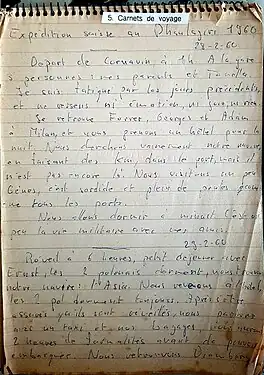 5. Carnets de voyage
Expédition suisse au Dhaulagiri 1960
28-2-60
Départ de Cornavin à 1h A la gare
3 personnes: mes parents et
Je suis fatigué par les jours précédents
et ne ressens ni émotion, ni
Je retrouve Forrer, Georges et Adam
à Milan, et nous prenons un hôtel pour la
nuit. Nous cherchons vainement notre navire
en faisant des km, dans le port, mais il
n'est pas encore là. Nous visitons un peu
Gênes, c'est sordide et plein de
me tous les ports.
Nous allons dormir à minuit C'est un
peu la vie militaire avec mes amis.
29-2-60
Réveil à 6 heures, petit déjeuner avec
Ernst, les 2 polonais dorment, nous trouvons
notre navire: l'Asia. Nous à l'hôtel,
les 2 pol dorment toujours. Après s'être
assurés qu'ils sont réveillés, nous
avec un taxi et nos bagages, nous
2 heures de formalités avant de pouvoir
embarquer. Nous retrouvons Diemberger